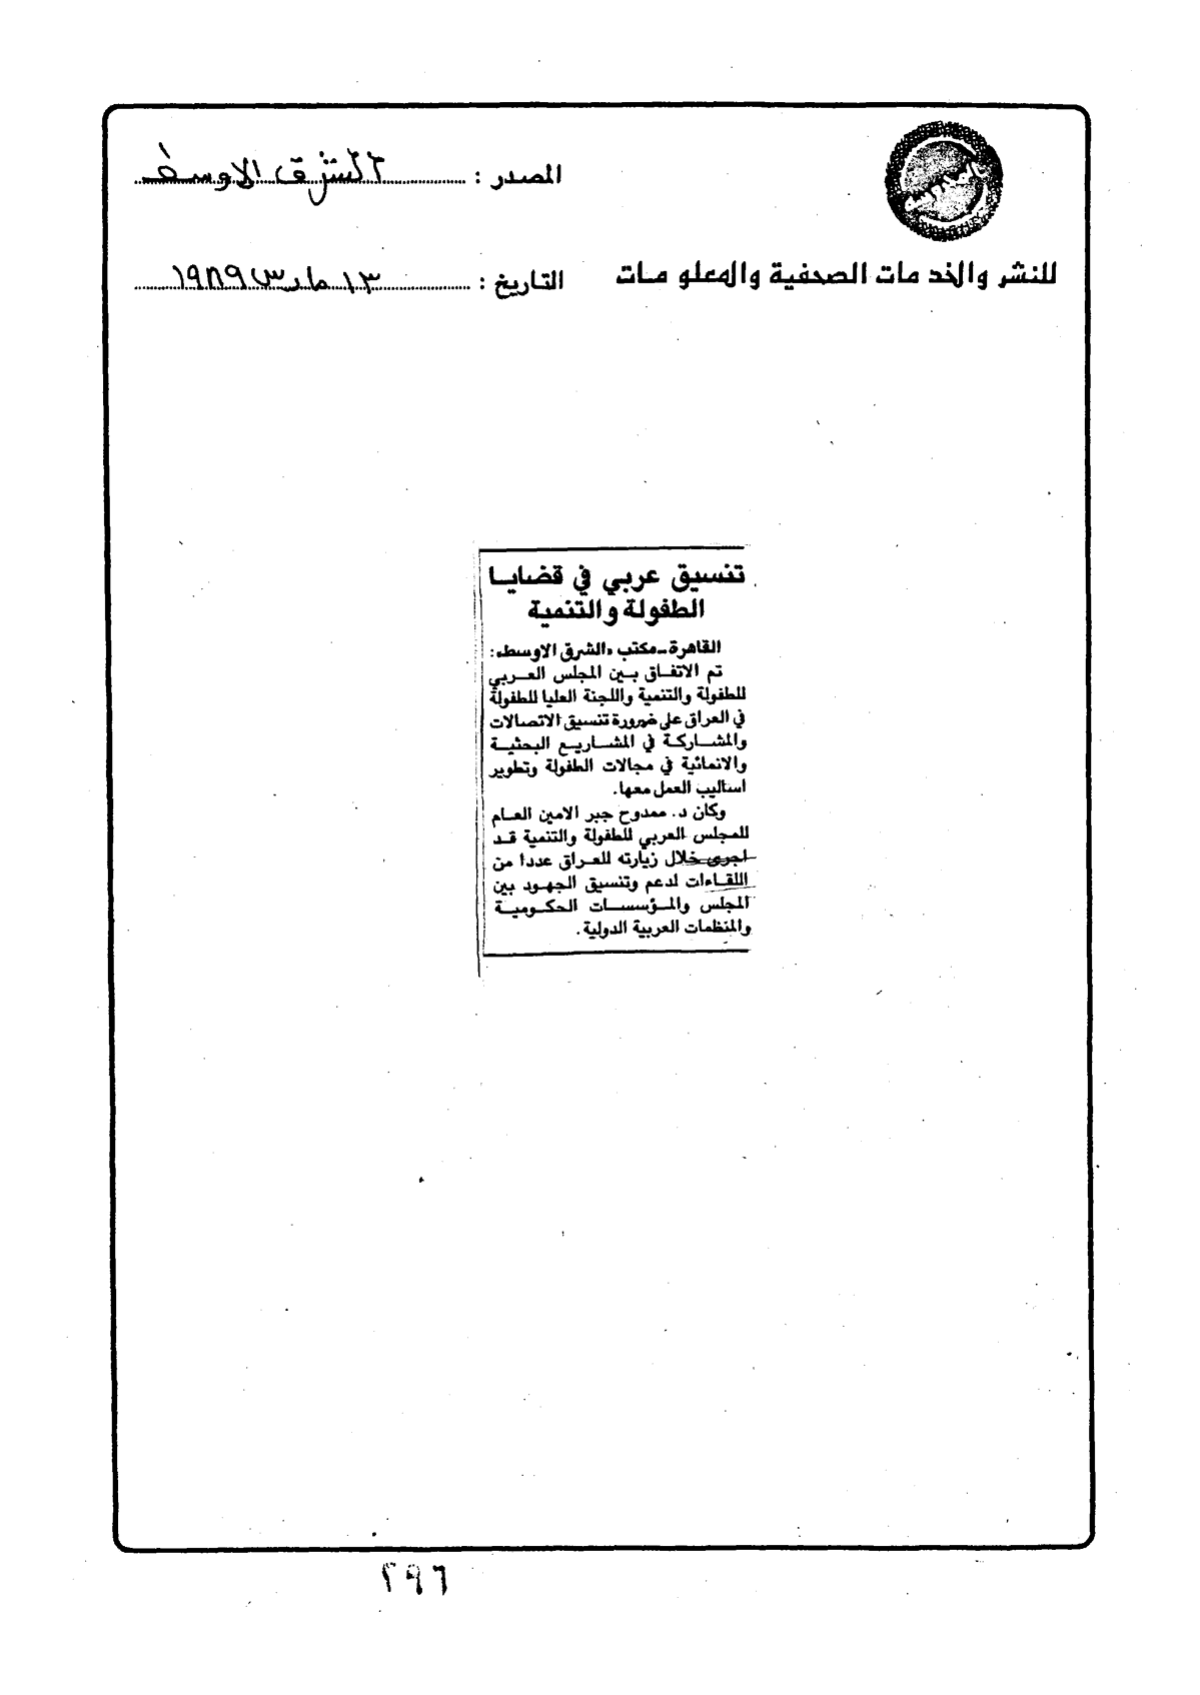 المصدر : الشرق الاوسط
للنشر والخدمات الصحفية والمعلومات
التاريخ : ١٣ مارس ١٩٨٩
تنسيق عربي في قضايا
الطفولة والتنمية
القاهرة - مكتب «الشرق الاوسط»:
تم الاتفاق بين المجلس العربي
للطفولة والتنمية واللجنة العليا للطفولة
في العراق على ضرورة تنسيق الاتصالات
والمشاركة في المشاريع البحثية
والانمائية في مجالات الطفولة وتطوير
اساليب العمل معها.
وكان د. ممدوح جبر الامين العام
للمجلس العربي للطفولة والتنمية قد
اجرى خلال زيارته للعراق عددا من
اللقاءات لدعم وتنسيق الجهود بين
المجلس والمؤسسات الحكومية
والمنظمات العربية الدولية.
٢٩٦